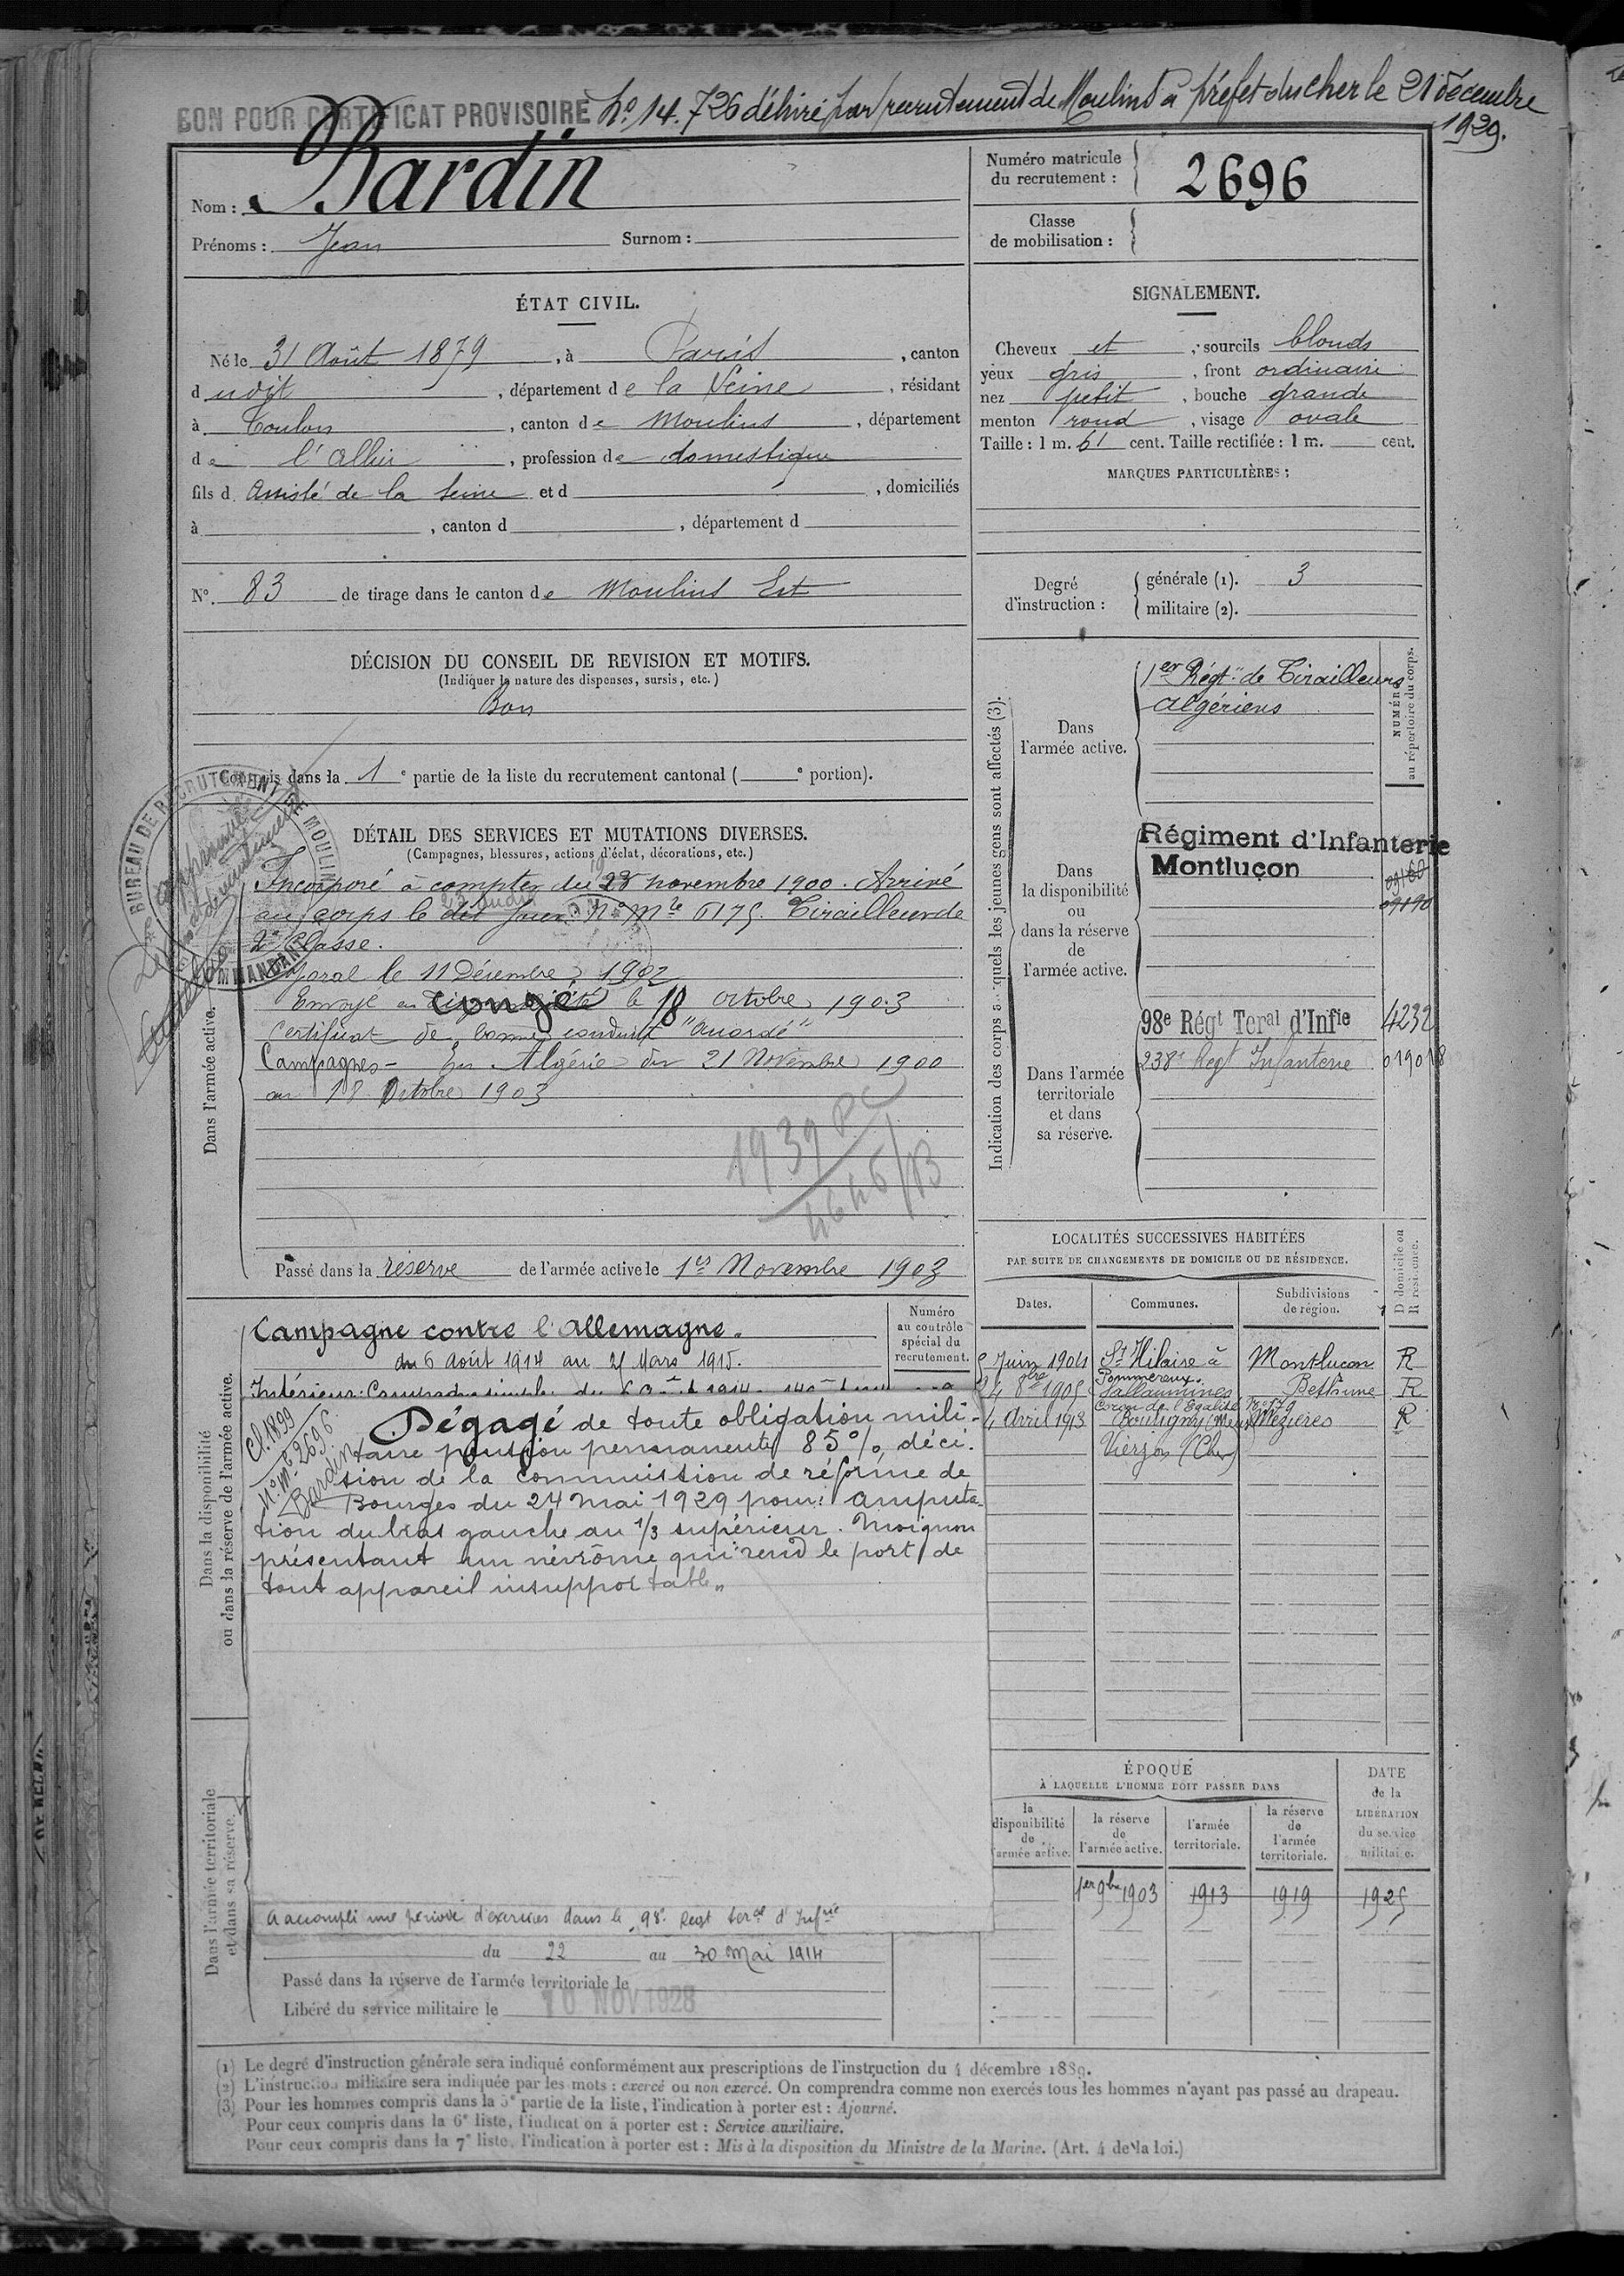 BON POUR CERTIFICAT PROVISOIRE No 14.726 délivré par recrutement de Moulins à préfet du Cher le 21 décembre
1929.
Nom : Bardin
Prénoms : Jean Surnom :
Numéro matricule
du recrutement : 2696
Classe
de mobilisation :
ÉTAT CIVIL.
Né le 31 Août 1879, à Paris, canton
d udit, département de la Seine, résidant
à Toulon, canton de Moulins, département
de l'Allier, profession de domestique
fils d Assisté de la Seine et d , domiciliés
à , canton d , département d
SIGNALEMENT.
Cheveux et , sourcils blonds
yeux gris, front ordinaire
nez petit, bouche grande
menton rond, visage ovale
Taille : 1 m. 61 cent. Taille rectifiée : 1 m. cent.
MARQUES PARTICULIÈRES :
N° 83 de tirage dans le canton de Moulins Est
Degré
d'instruction :
générale (1). 3
militaire (2).
DÉCISION DU CONSEIL DE REVISION ET MOTIFS.
(Indiquer la nature des dispenses, sursis, etc.)
Bon
Compris dans la 1e partie de la liste du recrutement cantonal ( e portion).
BUREAU DE RECRUTEMENT DE MOULINS
DÉTAIL DES SERVICES ET MUTATIONS DIVERSES.
(Campagnes, blessures, actions d'éclat, décorations, etc.)
Dans l'armée active.
Incorporé à compter du novembre 1900. Arrivé
au corps le dit jour No Mle 6175. Tirailleur de
2e classe.
Caporal le 11 Décembre 1902
Envoyé en congé le 18 octobre 1903
Certificat de bonne conduite "Accordé"
Campagnes - En Algérie du 21 Novembre 1900
au 18 Octobre 1903
1939
Passé dans la réserve de l'armée active le 1er Novembre 1903
Indication des corps auxquels les jeunes gens sont affectés (3).
NUMÉRO
au répertoire du corps.
Dans
l'armée active.
1er Régt de Tirailleurs
Algériens
Dans
la disponibilité
ou
dans la réserve
de
l'armée active.
Régiment d'Infanterie
Montluçon
Dans l'armée
territoriale
et dans
sa réserve.
98e Régt Teral d'Infie 4232
238e Regt Infanterie 019018
LOCALITÉS SUCCESSIVES HABITÉES
PAR SUITE DE CHANGEMENTS DE DOMICILE OU DE RÉSIDENCE.
Dates. Communes. Subdivisions
de région.
D domicile ou
R résidence.
5 Juin 1904 St Hilaire à Montluçon R
Pommereux.
24 8bre 1905 Sallaumines Béthune R
Coron de l'Egalité No 179
4 Avril 1913 Bouligny (Meuse) Mézières R
Vierzon (Cher)
Dans la disponibilité
ou dans la réserve de l'armée active.
Numéro
au contrôle
spécial du
recrutement.
Campagne contre l'Allemagne.
du 6 Août 1914 au 21 Mars 1915.
Cl. 1899
No Mle 2696
Bardin
Dégagé de toute obligation mili-
taire pension permanente 85 % déci-
sion de la commission de réforme de
Bourges du 24 mai 1929 pour: amputa-
tion du bras gauche au 1/3 supérieur. Moignon
présentant un névrôme qui rend le port de
tout appareil insupportable"
Dans l'armée territoriale
et dans sa réserve.
A accompli une période d'exercices dans le 98e Regt teral d'Infrie
du 22 au 30 Mai 1914
Passé dans la réserve de l'armée territoriale le
Libéré du service militaire le 10 NOV 1928
ÉPOQUE
À LAQUELLE L'HOMME DOIT PASSER DANS
la
disponibilité
de
l'armée active.
la réserve
de
l'armée active.
l'armée
territoriale.
la réserve
de
l'armée
territoriale.
DATE
de la
LIBÉRATION
du service
militaire.
1er 9bre 1903 1913 1919 1925
(1) Le degré d'instruction générale sera indiqué conformément aux prescriptions de l'instruction du 4 décembre 1889.
(2) L'instruction militaire sera indiquée par les mots : exercé ou non exercé. On comprendra comme non exercés tous les hommes n'ayant pas passé au drapeau.
(3) Pour les hommes compris dans la 5e partie de la liste, l'indication à porter est : Ajourné.
Pour ceux compris dans la 6e liste, l'indication à porter est : Service auxiliaire.
Pour ceux compris dans la 7e liste, l'indication à porter est : Mis à la disposition du Ministre de la Marine. (Art. 4 de la loi.)